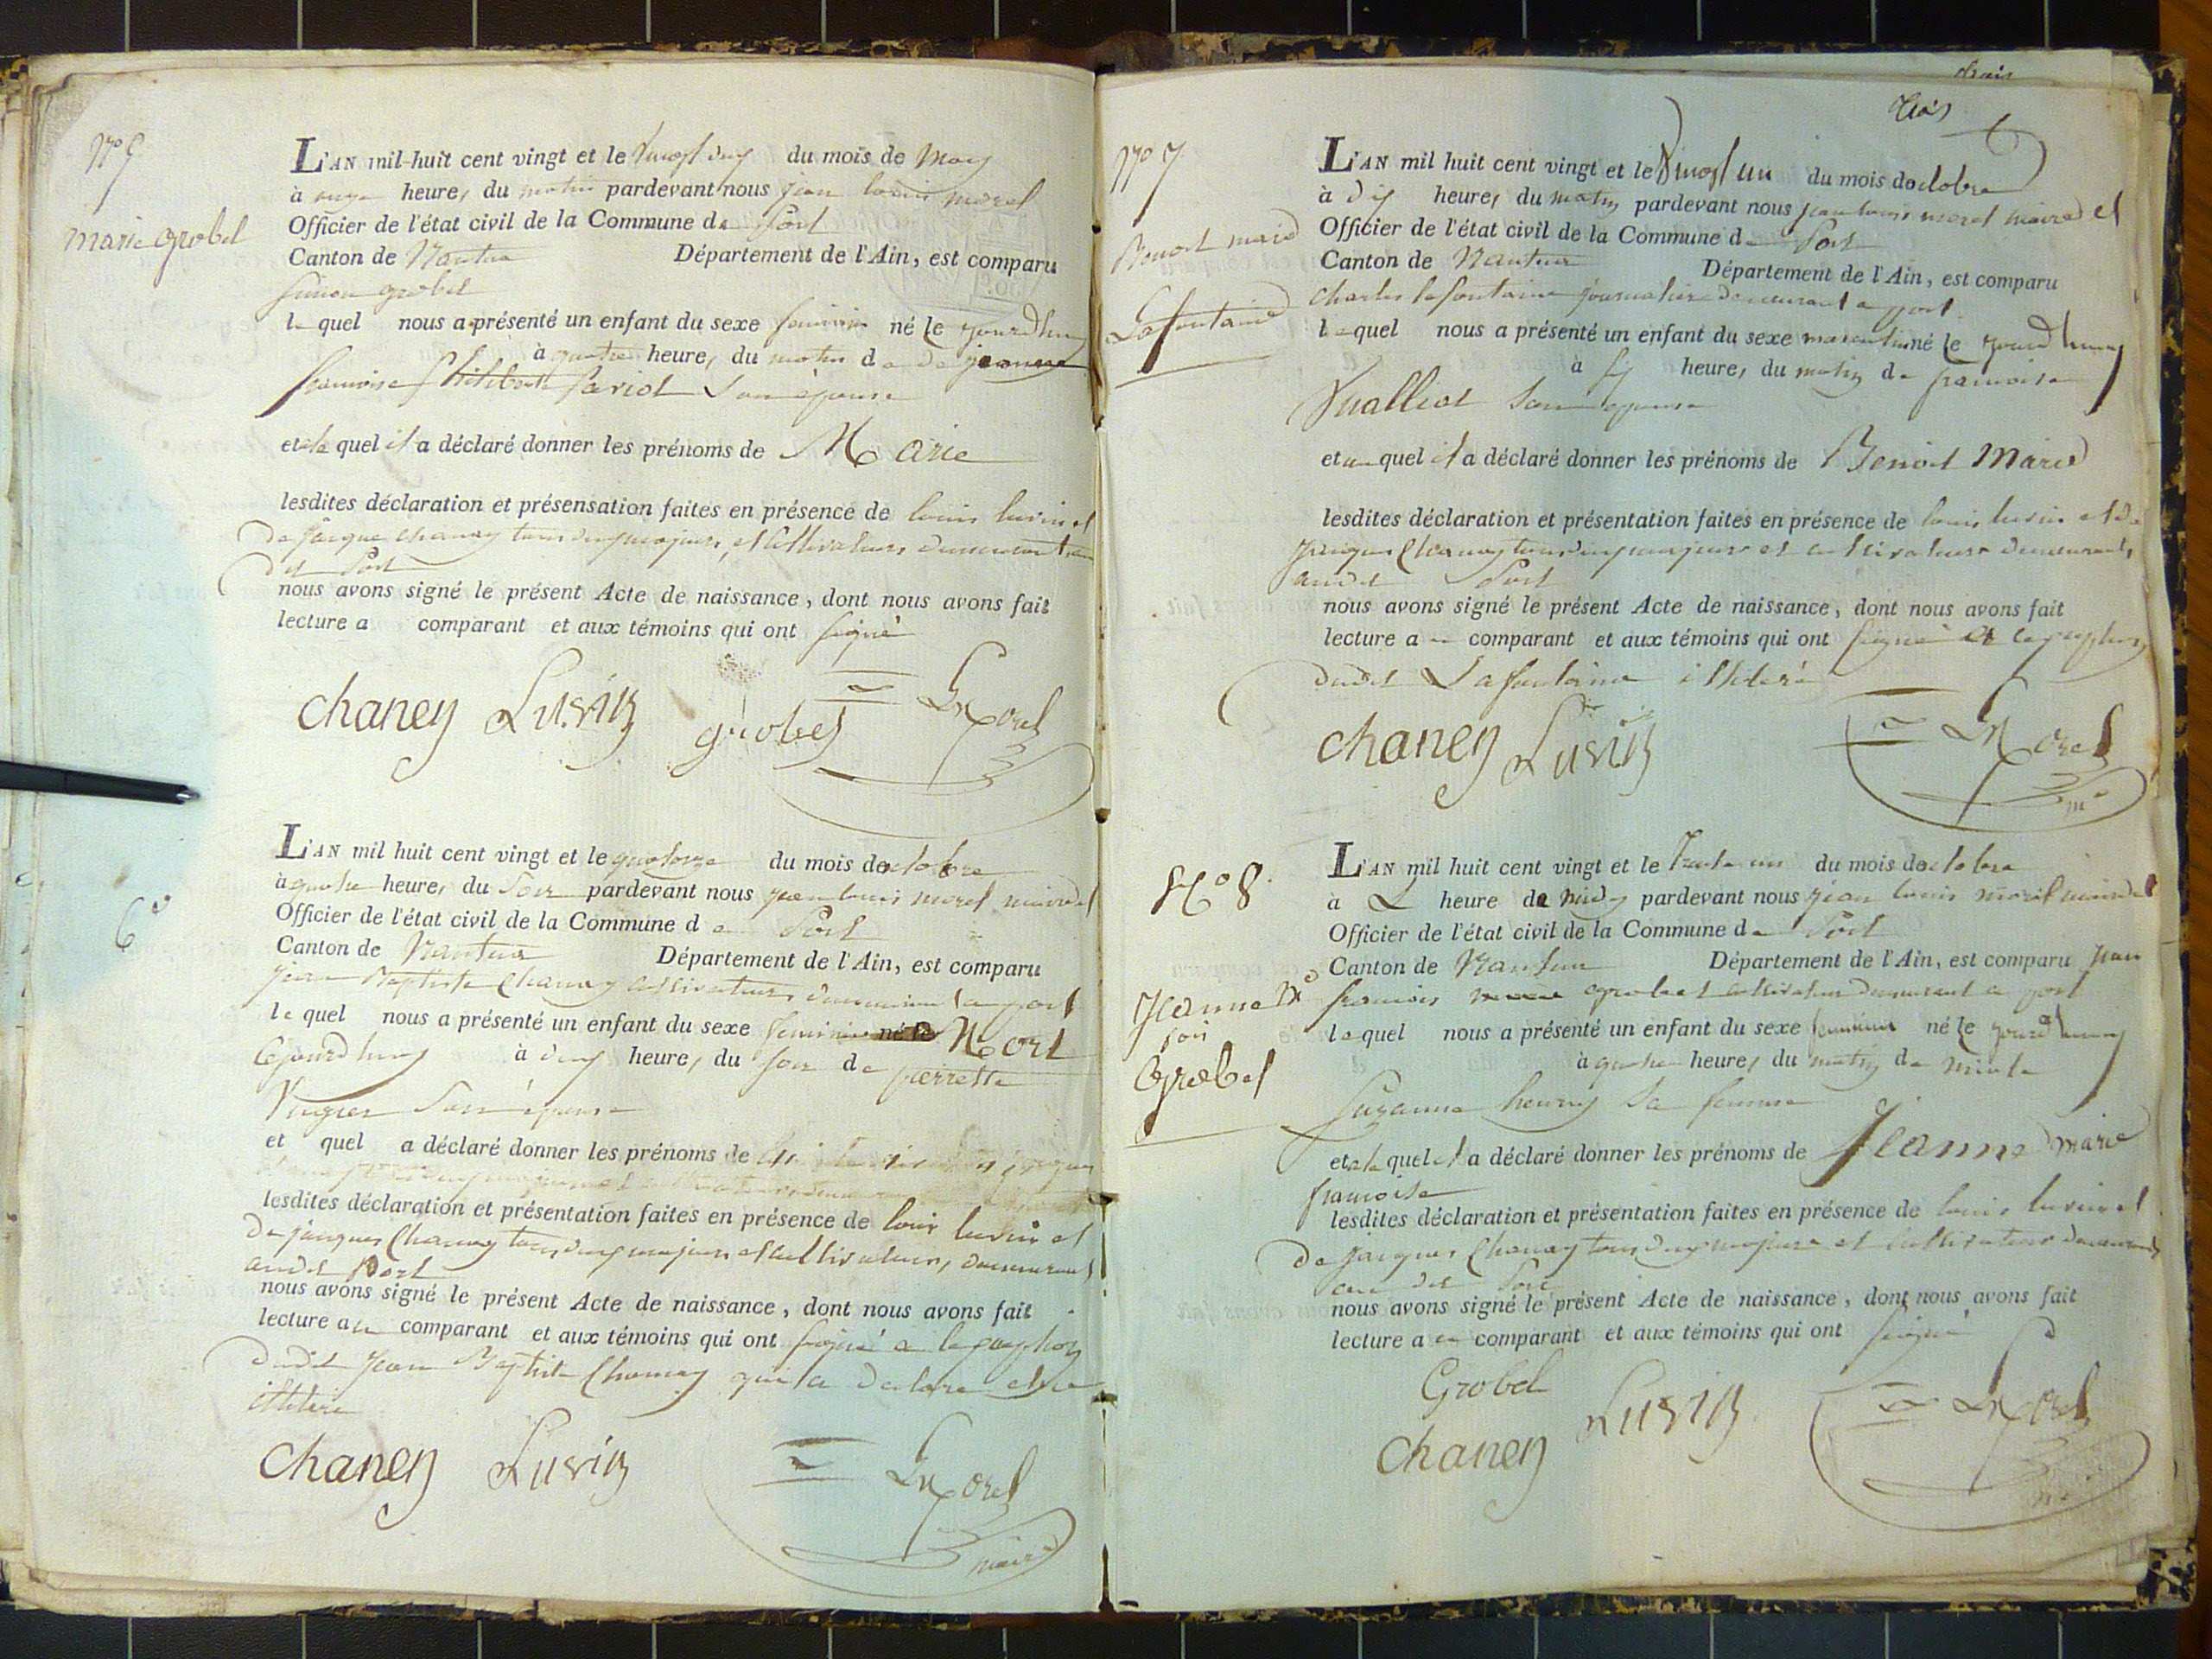 N° 5
marie grobel
L'AN mil huit cent vingt et le vingt deux du mois de May
à onze heures du matin pardevant nous jean louis morel
Officier de l'état civil de la Commune de Port
Canton de Nantua Département de l'Ain, est comparu
Simon grobel
lequel nous a présenté un enfant du sexe feminin né le jourdhuy
à quatre heures du matin de de jeanne
francoise Philiberte Pariod Son épouse
et a la quel il a déclaré donner les prénoms de Marie
lesdites déclaration et présensation faites en présence de louis luvin et
de jacque chanay tous deux majeurs, et Cultivateurs demeurant au
dit Port
nous avons signé le présent Acte de naissance, dont nous avons fait
lecture a comparant et aux témoins qui ont signé
chaney Luvin grobel Morel
6e
L'AN mil huit cent vingt et le quatorze du mois de octobre
à quatre heures du Soir pardevant nous jean louis morel maire et
Officier de l'état civil de la Commune de Port
Canton de Nantua Département de l'Ain, est comparu
jean Baptiste Chanay Cultivateur demeurant a port
le quel nous a présenté un enfant du sexe feminin né le Mort
Cejourdhuy à deux heures du soir de pierrette
Son épouse
et quel a déclaré donner les prénoms de
lesdites déclaration et présentation faites en présence de louis luvin et
de jacques Chanay tous deux majeurs et cultivateurs, demeurant
audit Port
nous avons signé le présent Acte de naissance, dont nous avons fait
lecture au comparant et aux témoins qui ont signé a
dudit Jean Baptiste Chanay qui a declaré etre
illiteré
chaney Luvin Morel
maire
trois
N° 7
Benoit marie
Lafontaine
L'AN mil huit cent vingt et le Vingt un du mois doctobre
à dix heures du matin pardevant nous jean louis morel maire et
Officier de l'état civil de la Commune de Port
Canton de Nantua Département de l'Ain, est comparu
Charles lafontaine journalier demeurant a port
lequel nous a présenté un enfant du sexe masculin né le jourdhuy
à six heures du matin de francoise
Vualliod Son epouse
et au quel il a déclaré donner les prénoms de Benoit Marie
lesdites déclaration et présentation faites en présence de louis luvin et de
jacques Chanay tous deux majeurs et cultivateurs demeurants
audit Port
nous avons signé le présent Acte de naissance, dont nous avons fait
lecture au comparant et aux témoins qui ont signé
dudit Lafontaine illiteré
chaney Luvin Morel
me
N° 8.
Jeanne Me
foise
Grobel
L'AN mil huit cent vingt et le trente un du mois doctobre
à L heure de midy pardevant nous jean louis morel maire et
Officier de l'état civil de la Commune de Port
Canton de Nantua Département de l'Ain, est comparu jean
francois grobel cultivateur demeurant a port
lequel nous a présenté un enfant du sexe feminin né le jourdhuy
à quatre heures du matin de
Suzanne henry Sa femme
et a la quel il a déclaré donner les prénoms de Jeanne marie
francoise
lesdites déclaration et présentation faites en présence de louis luvin et
de jacques Chanay tous deux majeurs et Cultivateurs demeurants
au dit Port
nous avons signé le présent Acte de naissance, dont nous avons fait
lecture au comparant et aux témoins qui ont signé
Grobel Luvin Morel
chaney